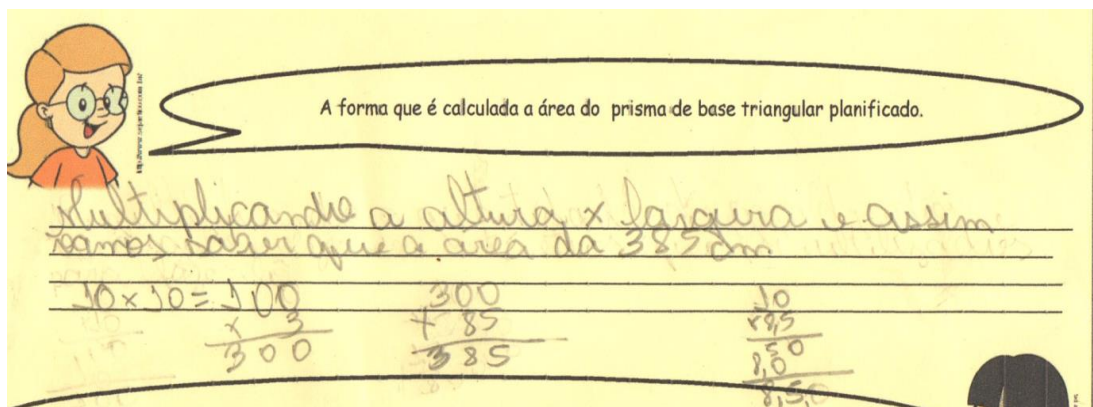 A forma que é calculada a área do prisma de base triangular planificado.
Multiplicando a altura x largura e assim
vamos saber que a área da 385 cm
10 x 10 = 100 300 10
x 3 + 85 x 8,5
300 385 50
8,0
8,5,0